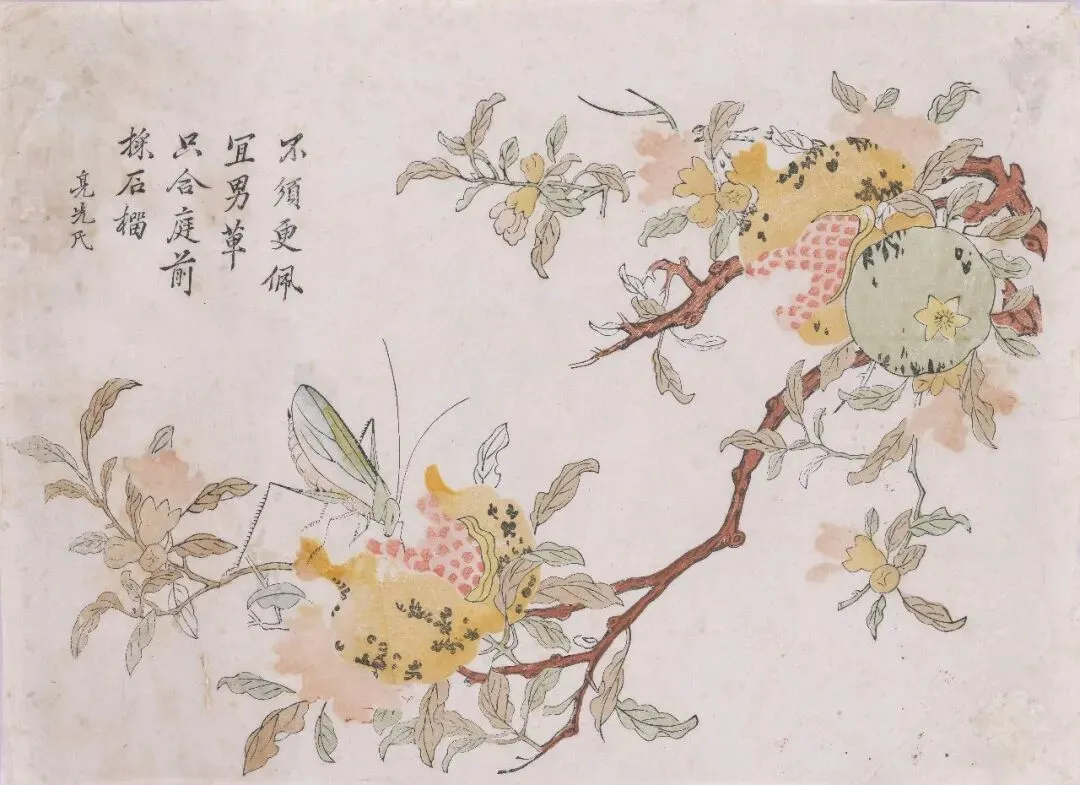 不須更佩
宜男草
只合庭前
採石榴
亮先氏